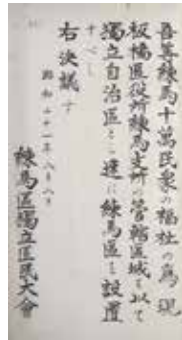 吾等練馬十萬民衆の福祉の爲現
板橋區役所練馬支所の管轄區域を以て
獨立自治區とし速に練馬區を設置
すべし
右決議す
昭和二十一年八月
練馬區獨立區民大會